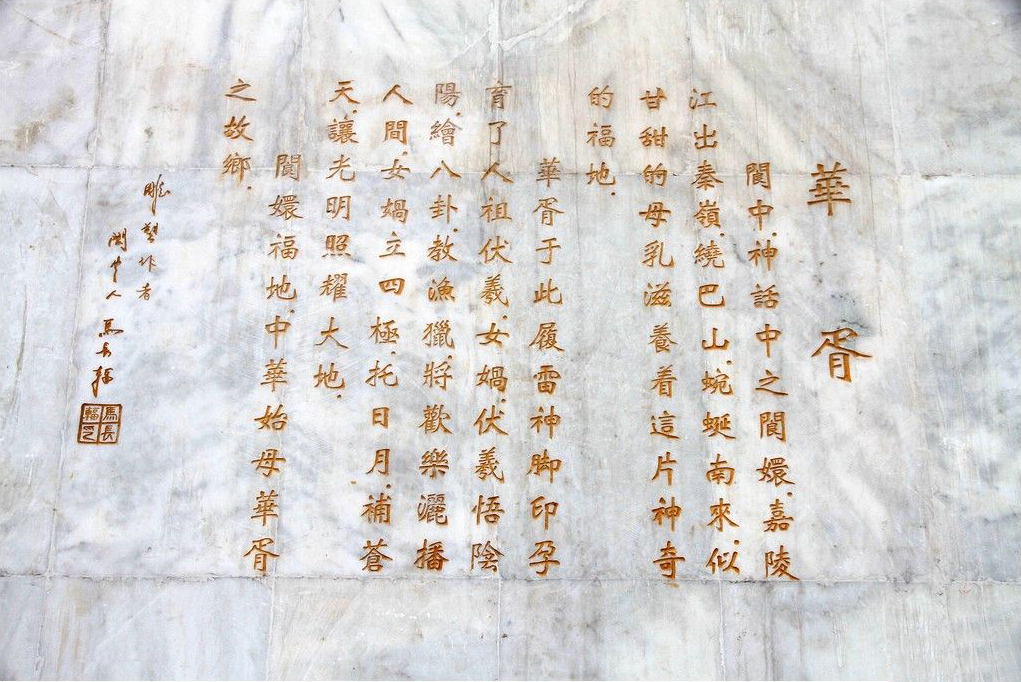 華胥
閬中,神話中之閬嬛.嘉陵
江出秦嶺,繞巴山.蜿蜒南來.似
甘甜的母乳滋養着這片神奇
的福地.
華胥于此履雷神脚印孕
育了人祖伏羲.女媧.伏羲悟陰
陽.繪八卦.教漁獵.將歡樂灑播
人間.女媧立四極.托日月.補蒼
天.讓光明照耀大地.
閬嬛福地.中華始母華胥
之故鄉.
雕塑作者
閬中人 馬長輻
馬長輻之